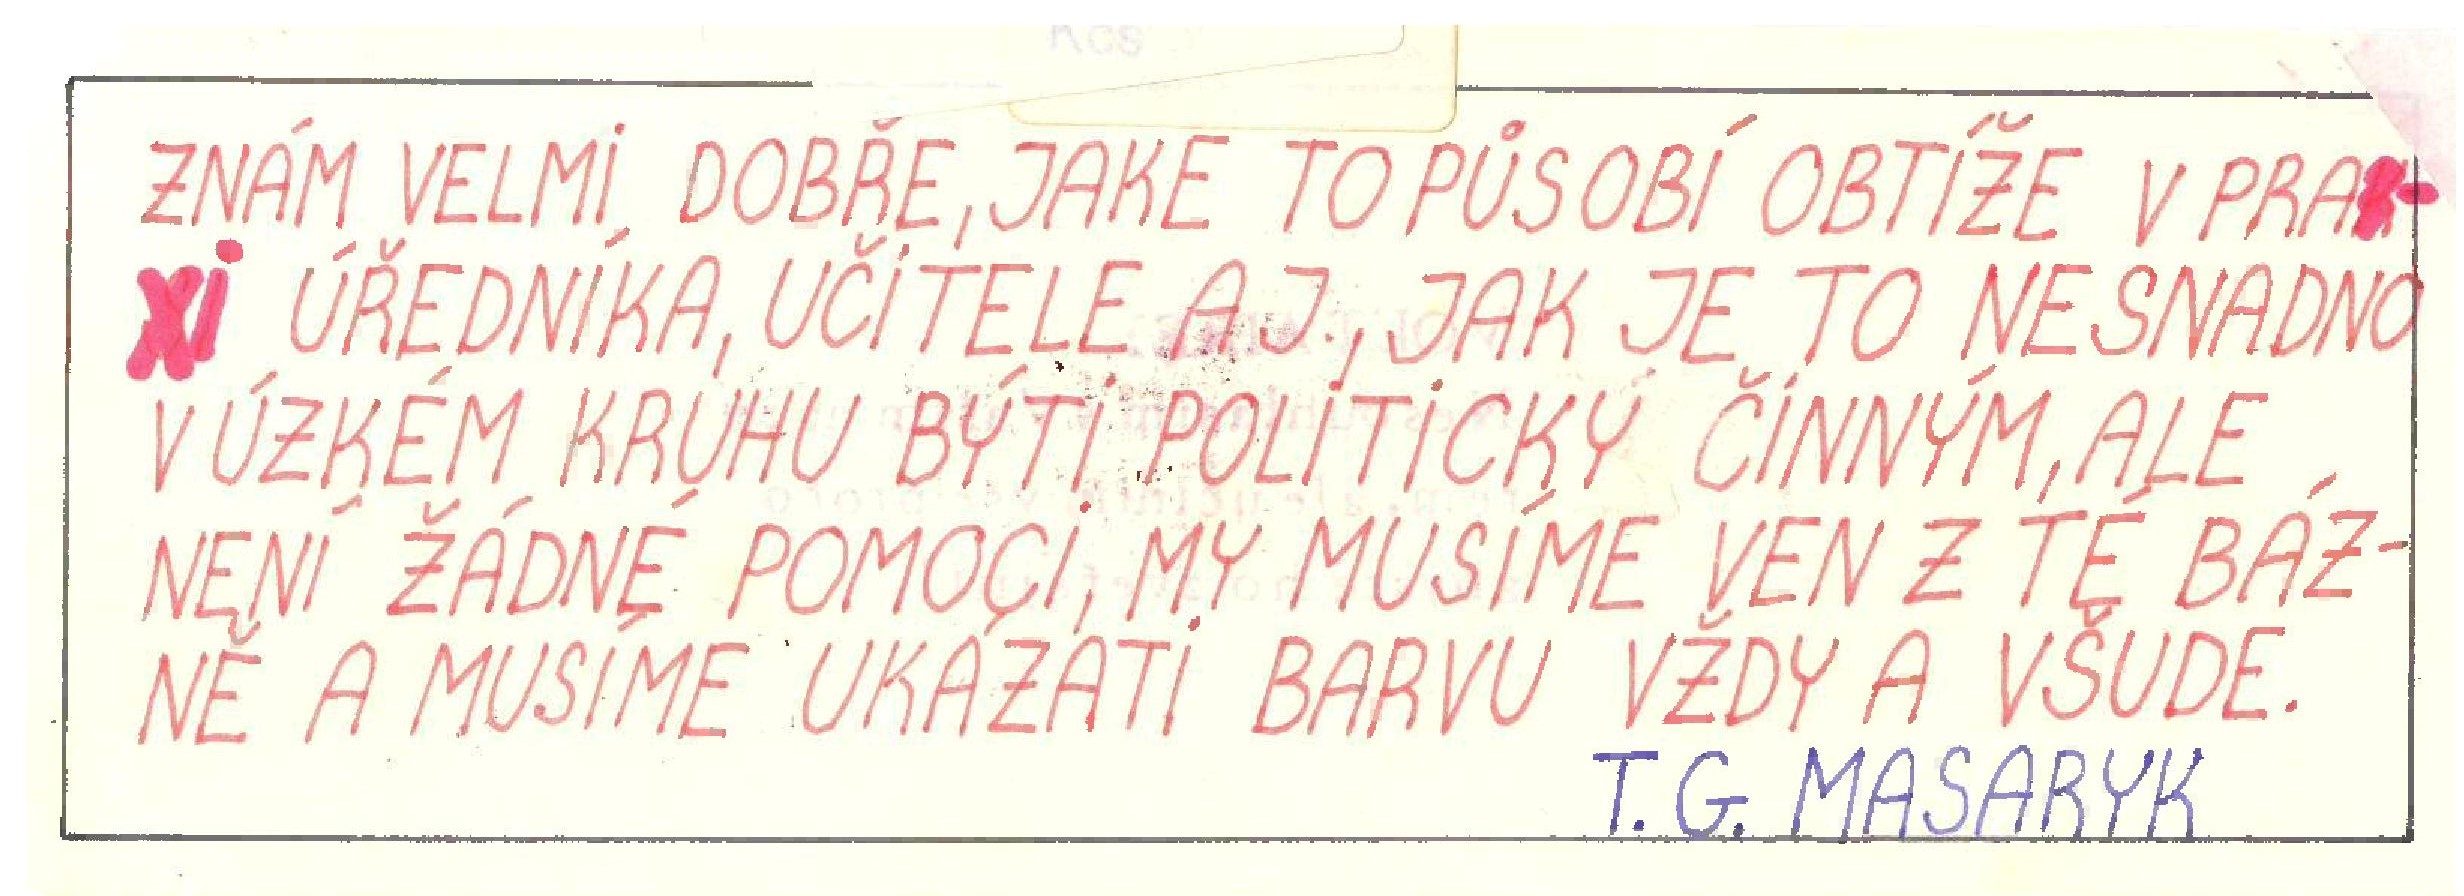 Kčs
ZNÁM VELMI DOBŘE, JAKE TO PŮSOBÍ OBTÍŽE V PRA-
XI ÚŘEDNÍKA, UČITELE AJ., JAK JE TO NESNADNO
V ÚZKÉM KRUHU BÝTI POLITICKY ČINNÝM, ALE
NENÍ ŽÁDNÉ POMOCI, MY MUSÍME VEN Z TÉ BÁZ-
NĚ A MUSÍME UKÁZATI BARVU VŽDY A VŠUDE.
T. G. MASARYK